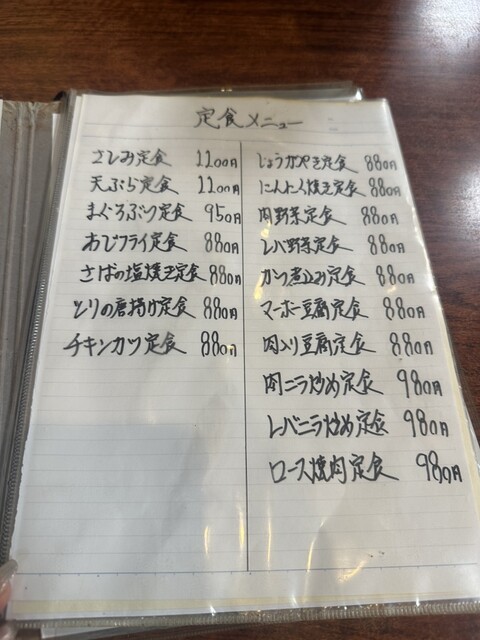 定食メニュー
さしみ定食 1100円
天ぷら定食 1100円
まぐろぶつ定食 950円
あじフライ定食 880円
さばの塩焼き定食 880円
とりの唐揚げ定食 880円
チキンカツ定食 880円
しょうがやき定食 880円
にんにく焼き定食 880円
肉野菜定食 880円
レバ野菜定食 880円
カツ煮込み定食 880円
マーボー豆腐定食 880円
肉入り豆腐定食 880円
肉ニラ炒め定食 980円
レバニラ炒め定食 980円
ロース焼肉定食 980円